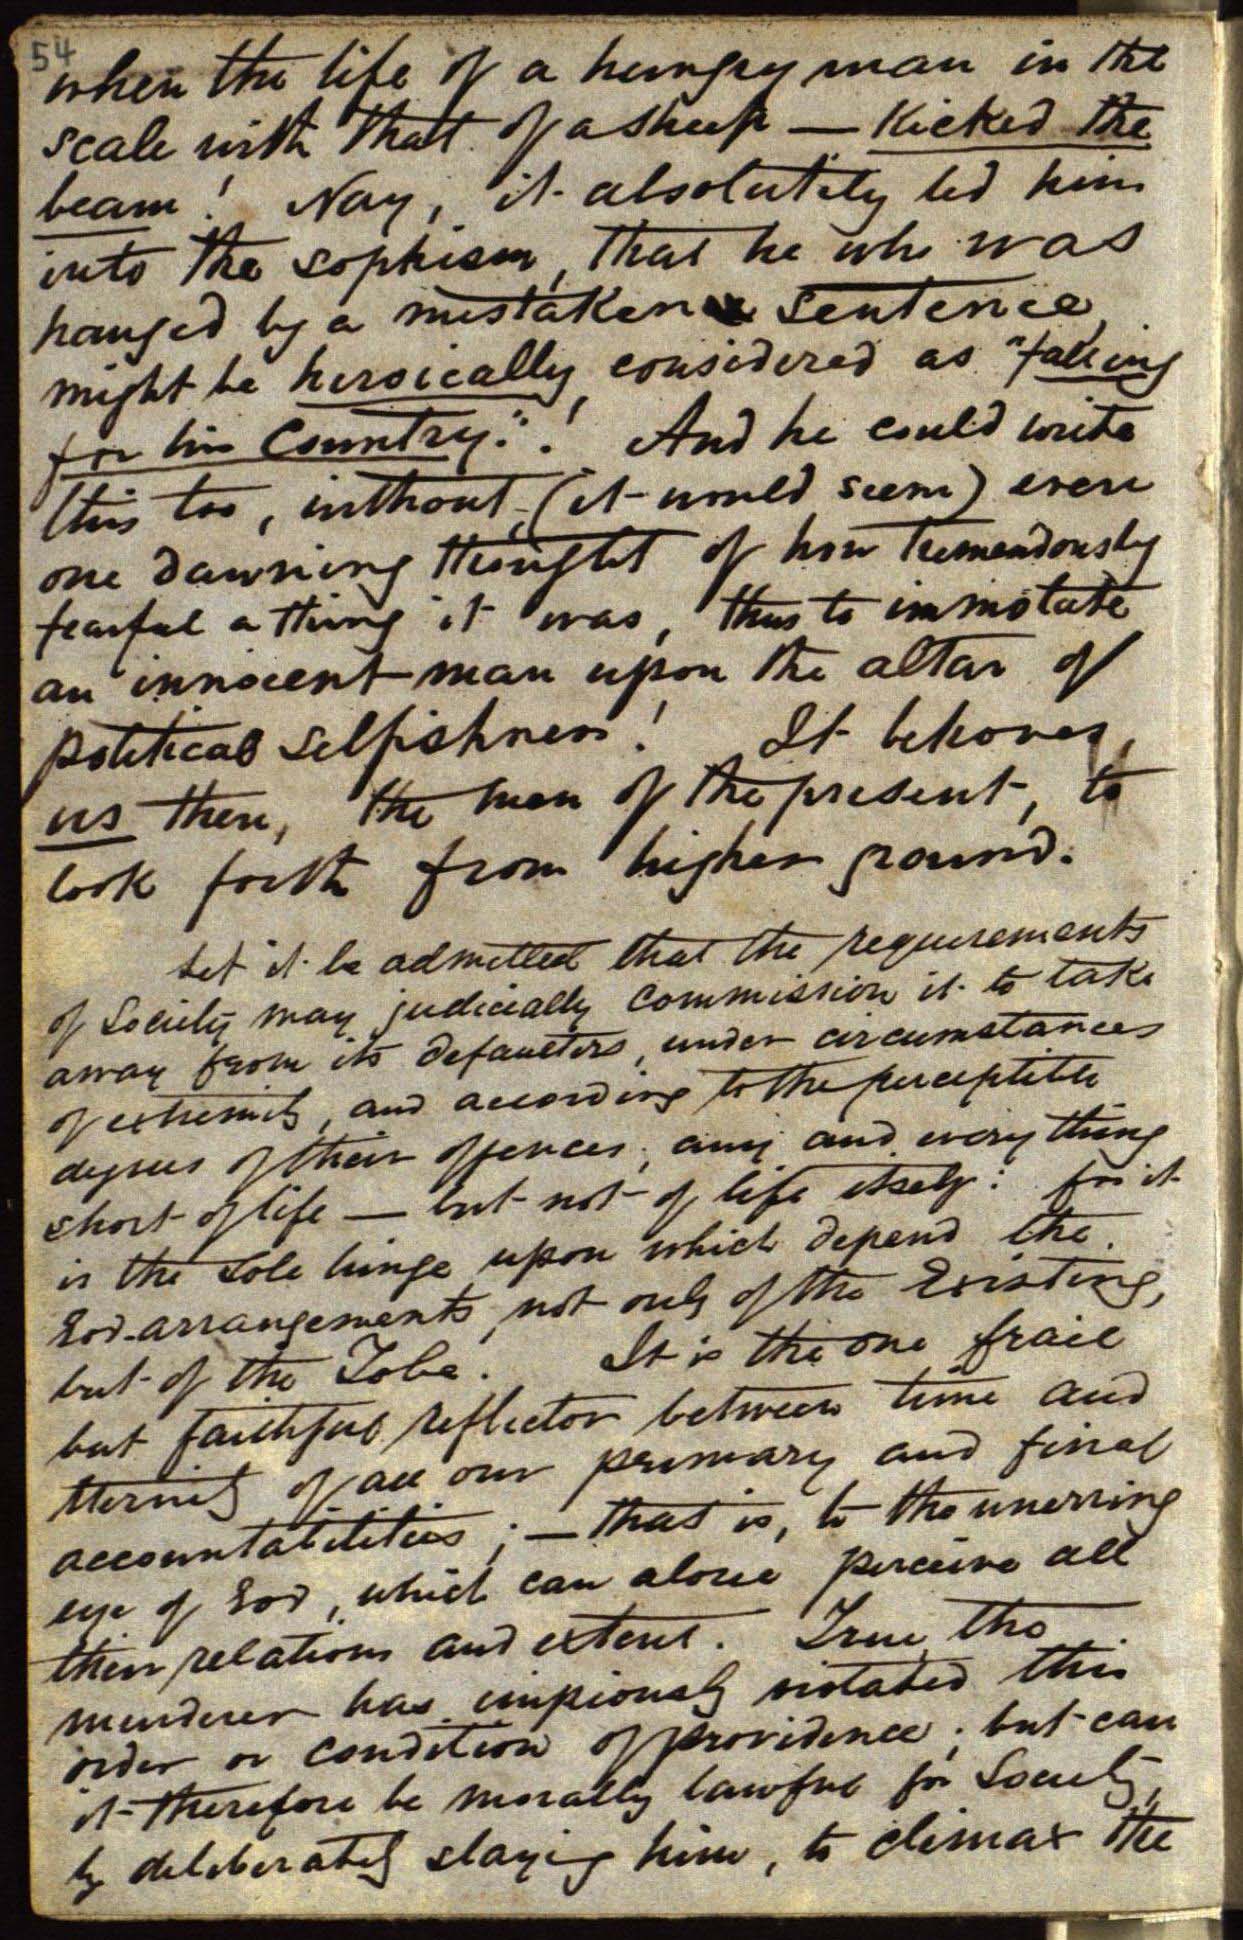 54
when the life of a hungry man in the
scale with that of a sheep — kicked the
beam! Nay, it absolutely led him
into the sophism, that he who was
hanged by a mistaken sentence,
might be heroically considered as "falling
for his Country."! And he could write
this too, without, (it would seem) even
one dawning thought of how tremendously
fearful a thing it was, thus to immolate
an innocent man upon the altar of
political selfishness! It behoves,
us then, the men of the present, to
look forth from higher ground.
Let it be admitted that the requirements
of Society may judicially commission it to take
away from its defaulters, under circumstances
of extremity, and according to the perceptible
degrees of their offences, any and every thing
short of life — but not of life itself: for it
is the sole hinge upon which depend the
God-arrangements, not only of the Existing,
but of the To be. It is the one frail
but faithful reflector between time and
eternity of all our primary and final
accountabilities; — that is, to the unerring
eye of God, which can alone perceive all
their relations and extent. True, the
murderer has impiously violated this
order or condition of providence; but can
it therefore be morally lawful for Society,
by deliberately slaying him, to climax the